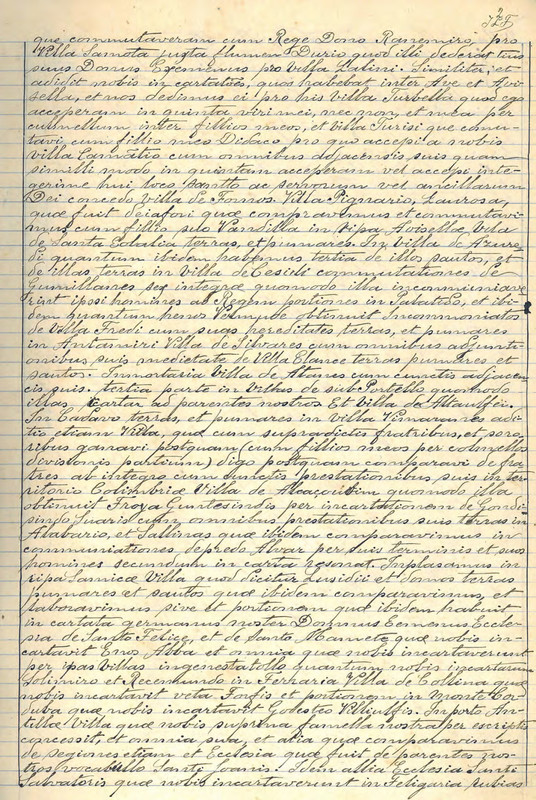 que commutaveram cum Rege Dono Ranemiro, pro
Villa Samota juxta flumen Durio quod illi dederat tius
suus Donus Exemenus pro Villa Lalini. Similiter, et
adidit nobis in cartatios, quos habebat inter Ave et Avi
sella, et nos dedimus ei pro his Villa Turbella quod ego
acceperam in quinta viri mei, nec non, et mea per
culmellum inter fillios meos, et Villa Jurisi que comu
tavi, cum fillio meo Didaco, pro que accepi a nobis
villa Lamoatio cum omnibus adjacensis, suis quam
simili modo, in quintam acceperam vel accepi inte
gerime hui loco sancto ac servorum vel ancillarum
Dei concedo Villa de Fornos. Villa Pignario, Laurosa,
quæ fuit de quæ compravimus et commutavi
mus cum fillio suo Vandilla in ripa Avisellæ, Villa
de Santa Eolalia terras, et pumares. In Villa de Azure
di quantum ibidem habemus tertia de illos sautos, et
de illas terras in Villa de Cesidi commutationes de
Gumillanes sex integræ quomodo illa incommuniave
rint ipsi homines ad Regem portiones in Palatiolo, et ibi
dem quantum obtinuit Incommoniatos
de Villa Fredi cum suas hereditates terras, et pumares
in Antamiri Villa de Silvares cum omnibus adjunti
onibus suis medietate de Villa Elance terras pumares et
sautos. Inmortaria Villa de Abunes cum cunctis adjacen
ciis suis. tertia parte in Villas de sub Portelle quomodo
illas cartat ad parentes nostros Et Villa de Ataulfei.
In Cadavo terras, et pumares in Villa Vimaranes adi
tis etiam Villa, quæ cum supradictis fratribus, et soro
ribus ganavi postquam (cum fillios meos per colmellos
divisionis partium) digo postquam comparavi de fra
tres ab integro cum cunctis prestationibus suis in ter
ritorio Colimbriæ Villa de Alcaçovim quomodo illa
obtinuit Froya Guntesindis per incartationem de Gondi
sindo Suaris cum omnibus prestationibus suis terras in
Alavario, et Salinas quæ ibidem comparavimus in
communiationes de predo Alvar per suis terminis et suos
homines secundum in carta resonat. Implasamus in
ripa Lamicæ Villa quod dicitur Lusidii et Domos terras
pumares et sautos quæ ibidem comparavimus, et
laboravimus sive et portionem quæ ibidem habuit
in cartata germanus noster Domnus Eemenus Eccle
sia de Santo Felice, et de Santo Mamete quæ nobis in-
cartavit Eros Abba et omnia quæ nobis incartaverunt
per ipas Villas ingenestatollo quantum nobis incartarum
Zolimiro et Recemundo in Ferraria Villa de Collina quæ
nobis incartavit veta Fosfis et portionem in Monte Cor
duba quæ nobis incartavit Godesteo Villiulfis. Im porto An
tillæ Villa quæ nobis suprina famella nostra per escriptis
concessit, et omnia sua, et alia quæ comparavimus
de segiones etiam et Ecclesia quæ fuit de parentes nos-
tros, vocabullo Santi Joanis. Idem allia Ecclesia Santi
Salvatoris quæ nobis incartaverunt in Feligaria rubias